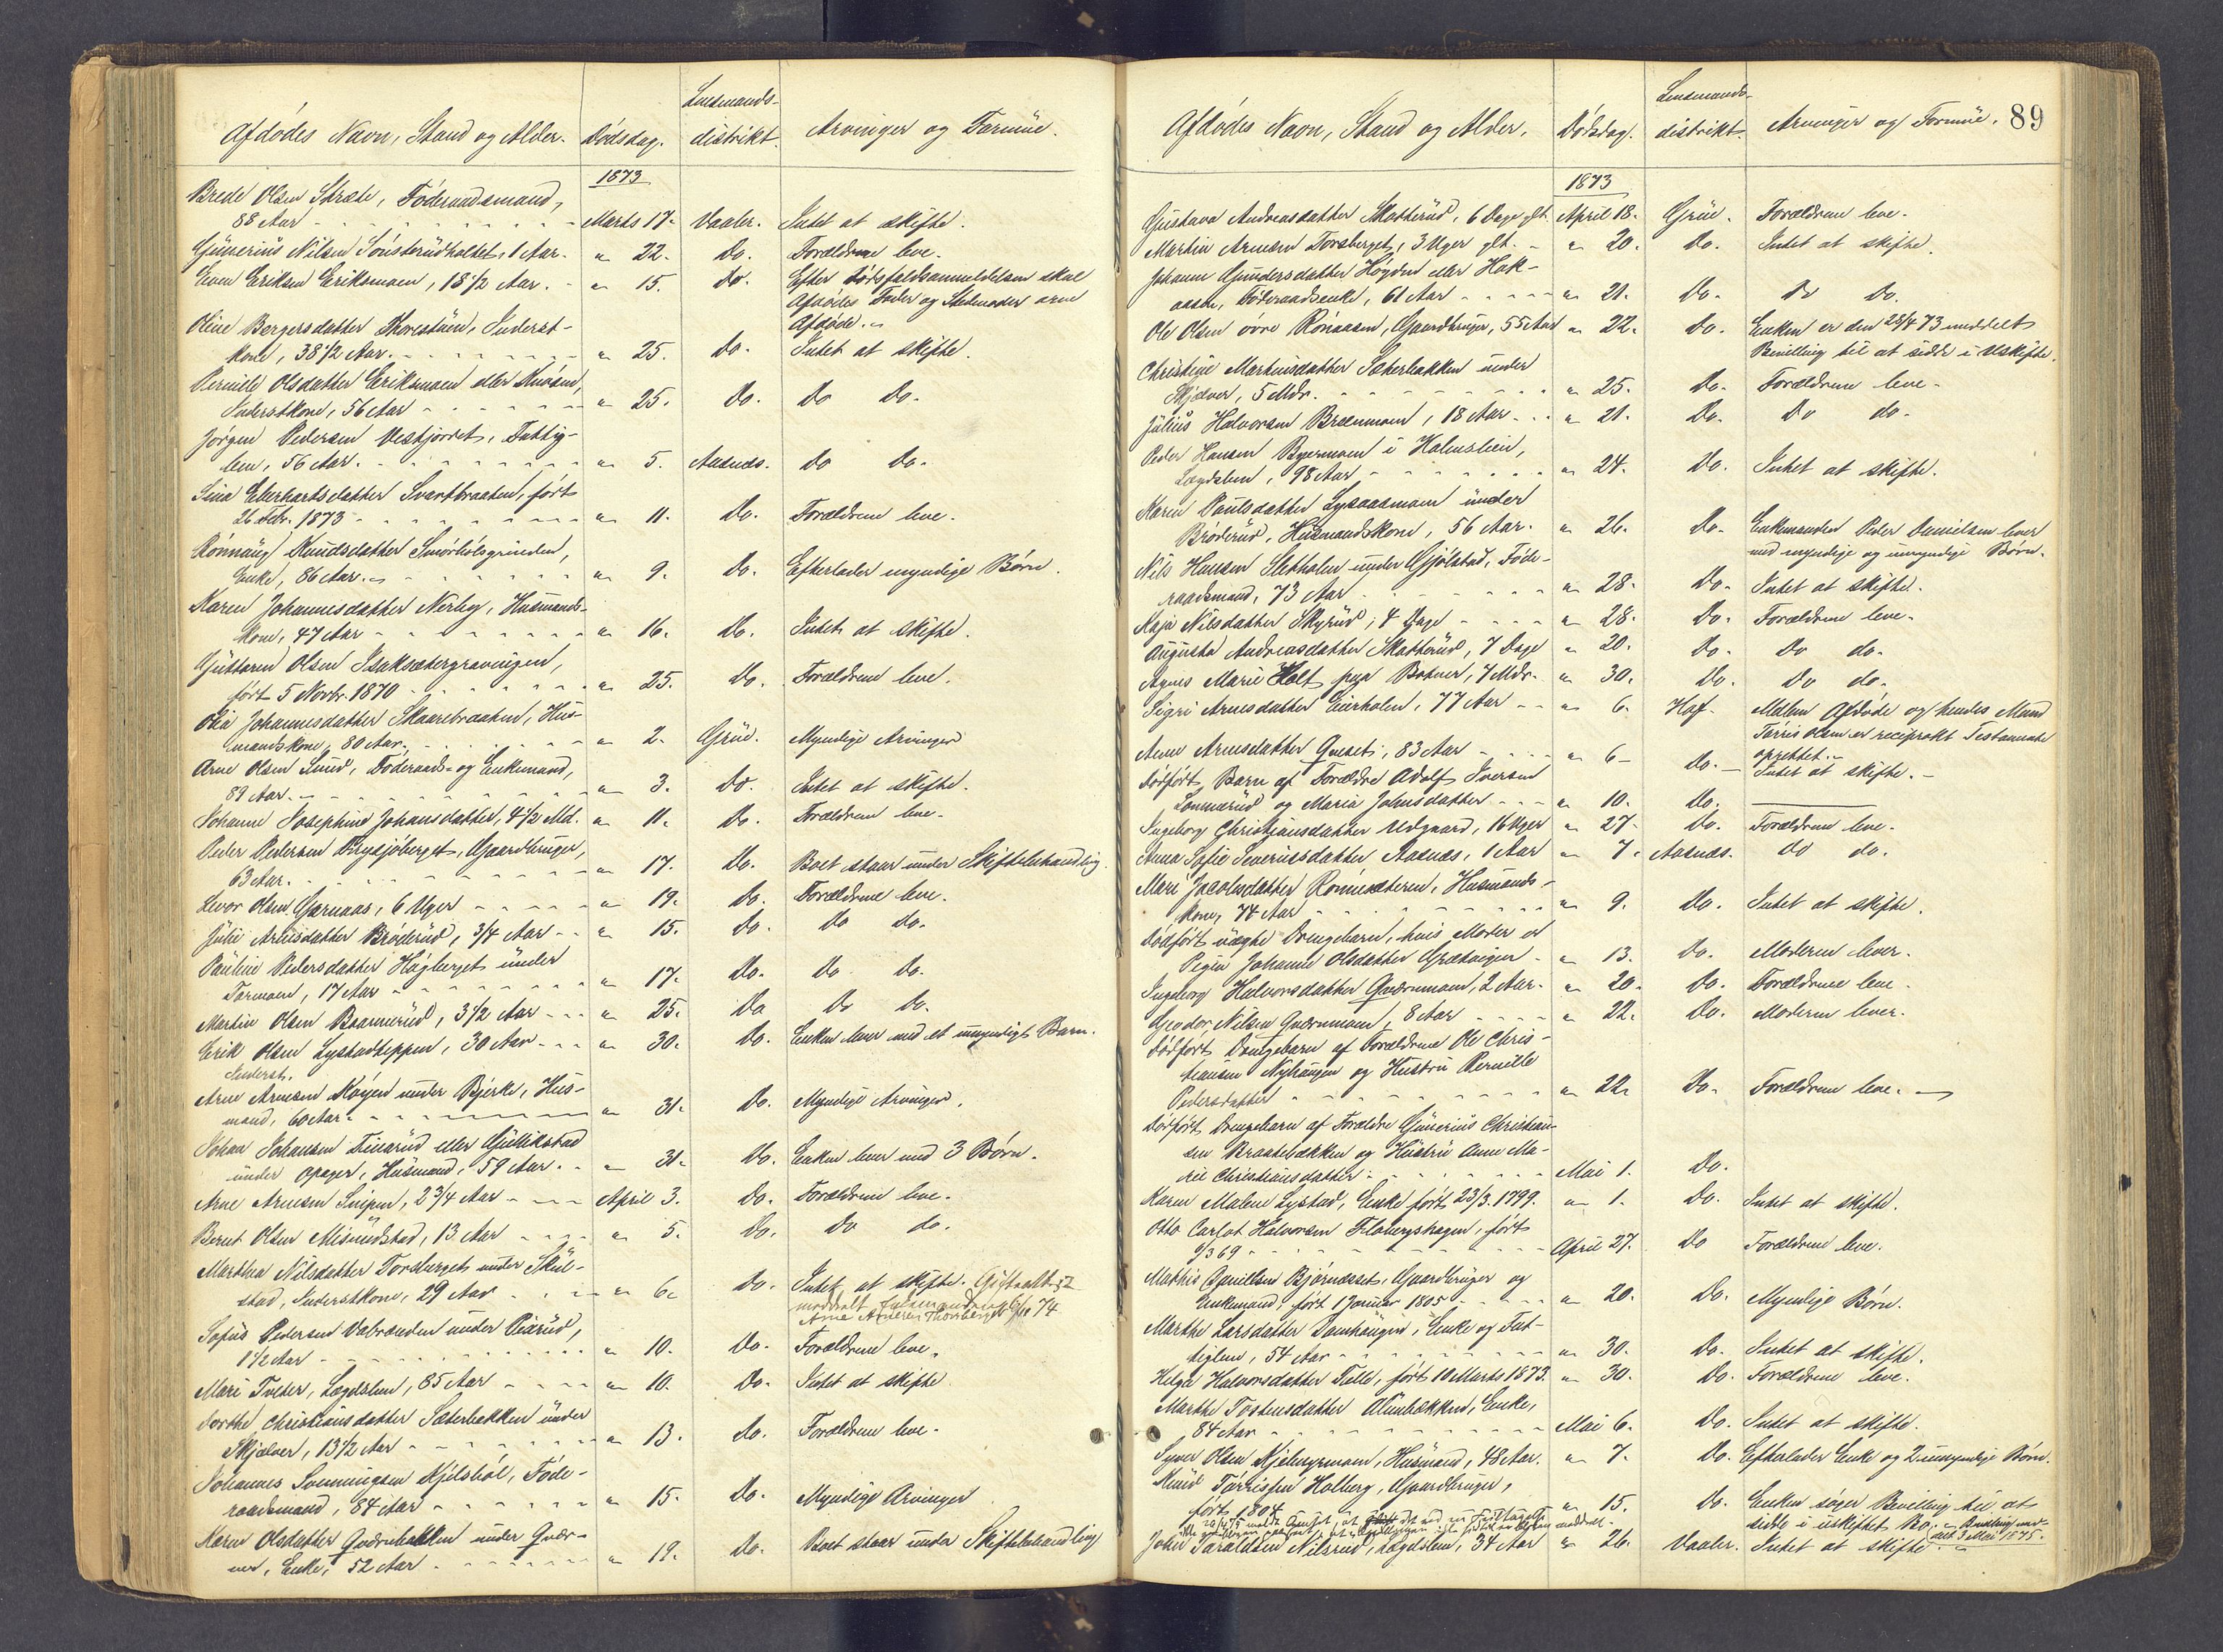 Afdödes Navn, Stand og Alder. Dödsdag. Lensmands-
distrikt. Arvinger og Formue.
1873
Brede Olsen Stræte, Föderaadsmand,
88 Aar - - - Marts 17. Vaaler. Intet at skifte.
Gunerius Nilsen 1 Aar. " 22. Do. Forældrene leve.
Even Eriksen Eriksmoen, 18 1/2 Aar. - " 15. Do. Efter dödsfaldsanmeldelsen skal
Afdödes Fader og Stedmoder arve
Afdöde.
Oline Bergersdatter Inderst-
kone, 38 1/2 Aar. - - - " 25. Do. Intet at skifte.
Pernille Olsdatter Eriksmoen eller
Inderstkone, 56 Aar - - - " 25. Do. Do Do.
Jörgen Pedersen Vestjordet, Fattig-
lem, 56 Aar. - - - " 5. Aasnæs. Do Do.
Sina Eberhartsdatter Svartbraaten, födt
26 Febr. 1873 - - - " 11. Do. Forældrene leve.
Rönnaug Knudsdatter Smörholsgrinden,
Enke, 86 Aar. - - - " 9. Do. Efterlader myndige Börn.
Karen Johannesdatter Nerby, Husmands-
kone, 47 Aar - - - " 16. Do. Intet at skifte.
Guttorm Olsen Isaksætergravningen,
födt 5 Novbr. 1870 - - - " 25. Do. Forældrene leve.
Olia Johannesdatter Skaarebraaten, Hus-
mandskone, 80 Aar. - - - " 2. Grue. Myndige Arvinger
Arne Olsen Lund, Föderaads- og Enkemand,
89 Aar. - - - " 3. Do. Intet at skifte.
Johanne Josephine Johansdatter, 4 1/2 Md. " 11. Do. Forældrene leve.
Peder Pedersen Frysjöberget, Gaardbruger,
63 Aar. - - - " 17. Do. Boet staar under Skiftebehandling.
Levor Olsen Garnaas, 6 Uger - - - " 19. Do. Forældrene leve.
Julie Arnesdatter Bröderud, 3/4 Aar - - " 15. Do. Do do.
Pauline Pedersdatter Högberget under
Tormoen, 17 Aar - - - " 17. Do. Do Do.
Martin Olsen Braanerud, 3 1/2 Aar - - - " 25. Do Do Do.
Erik Olsen Lystadteppen, 30 Aar - - - " 30. Do. Enken lever med et umyndigt Barn.
Inderst.
Arne Arnesen Möyen under Bjerke, Hus-
mand, 60 Aar - - - " 31. Do. Myndige Arvinger.
Johan Johansen Finarud eller Gulliksstad
under Opager, Husmand, 59 Aar. - - " 31. Do. Enken lever med 3 Börn.
Arne Arnesen Snipen, 2 3/4 Aar - - - April 3. Do. Forældrene leve.
Bernt Olsen Misundstad, 13 Aar - - - " 5. Do. Do do.
Marthea Nilsdatter Torsberget under Skul-
stad, Inderstkone, 29 Aar - - - " 6. Do. Intet at skifte. Giftealtest
meddelt Enkemanden
Arne Andersen Thorsberget 74
Sofus Pedersen Vabranden under Piarud,
1 1/2 Aar - - - " 10. Do. Forældrene leve.
Mari Tveter, Lægdslem, 85 Aar - - - " 10. Do. Intet at skifte.
Dorthe Christiansdatter Sæterbakken under
Skjælver, 13 1/2 Aar - - - " 13. Do. Forældrene leve.
Johannes Svenningsen Kjelsböl, Föde-
raadsmand, 84 Aar - - - " 15. Do. Myndige Arvinger
Karen Olsdatter Qværnbakken under Qvær-
nen, Enke, 52 Aar - - - " 19. Do. Boet staar under Skiftebehandling
Afdödes Navn, Stand og Alder. Dödsdag. Lensmands-
distrikt. Arvinger og Formue. 89
1873
Gustava Andreasdatter Skatterud, 6 Dage glt. April 18. Grue. Forældrene leve.
Martin Arnesen Torsberget, 3 Uger glt. - " 20. Do. Intet at skifte.
Johanne Gundersdatter Högden eller Hak-
aasen, Föderaadsenke, 61 Aar - - - " 21. Do. Do Do.
Ole Olsen övre Rönaasen, Gaardbruger, 55 Aar " 22. Do. Enken er den 23/4 73 meddelt
Bevilling til at sidde i Uskifte.
Christine Martinusdatter Sæterbakken under
Skjælver, 5 Mdr. - - - " 25. Do. Forældrene leve.
Julius Halvorsen Brænmoen, 18 Aar - - - " 21. Do. Do do.
Peder Hansen Byermoen i Holmslien,
Lægdslem, 98 Aar - - - " 24. Do. Intet at skifte.
Karen Paulsdatter Lysaasmoen under
Bröderud, Husmandskone, 56 Aar. " 26. Do. Enkemanden Peder Danielsen lever
med myndige og umyndige Börn.
Nils Hansen Sletholen under Gjölstad, Föde-
raadsmand, 73 Aar - - - " 28. Do. Intet at skifte.
Kaja Nilsdatter Skyrud, 4 Dage - - - " 28. Do. Forældrene leve.
Augusta Andreasdatter Skatterud, 7 Dage " 20. Do. Do do.
Agnes Marie Holt paa Botner, 7 Mdr. " 30. Do. Do do.
Sigri Arnesdatter Eierholen, 77 Aar - - " 6. Hof. Mellem Afdöde og hendes Mand
Törris Olsen er reciprokt Testamente
oprettet.
Anne Arnesdatter Qveset, 83 Aar - - - " 6 - Do. - Intet at skifte. -
Dödfödt Barn af Forældre Adolf Iversen
Lommerud og Maria Johnsdatter - - - " 10. Do.
Ingeborg Christiansdatter Udgaard, 16 Uger " 27. Do. Forældrene leve.
Anna Sofie Severinsdatter Aasnæs, 1 Aar " 7. Aasnæs. do do.
Mari Jacobsdatter Rönnesæteren, Husmands-
kone, 74 Aar - - - " 9. Do. Intet at skifte.
Dödfödt uægte Drengebarn, hvis Moder er
Pigen Johanne Olsdatter Grætningen - " 13. Do. Moderen lever.
Ingeborg Halvorsdatter Qværnmoen, 2 Aar. " 20. Do. Forældrene leve.
Theodor Nilsen Qværnmoen, 8 Aar - - - " 22. Do. Moderen lever.
Dödfödt Drengebarn af Forældrene Ole Chris-
tiansen Nyhaugen og Hustru Pernille
Pedersdatter - - - " 22. Do. Forældrene leve. -
Dödfödt Drengebarn af Forældre Gunerius Christian-
sen Braatebakken og Hustru Anne Ma-
rie Christiansdatter - - - Mai 1. Do.
Karen Malene Lystad, Enke födt 23/3. 1799. " 1. Do. Intet at skifte.
Otto Carlot Halvorsen Flabergshagen, födt
9/3 69 - - - April 27. Do Forældrene leve.
Mathis Bjørnæsset, Gaardbruger og
Enkemand, födt 1 Januar 1805 - - - " 20. Do. Myndige Börn.
Marthe Larsdatter Damhaugen, Enke og Fat-
tiglem, 54 Aar - - - " 30. Do. Intet at skifte.
Helga Halvorsdatter Felle, födt 10 Marts 1873. " 30. Do. Forældrene leve.
Marthe Tostensdatter Enke,
84 Aar - - - Mai 6. Do. Intet at skifte.
Syver Olsen Husmand, 48 Aar. " 7. Do. Efterlader Enke og 2 umyndige Börn.
Knud Törrissen Holberg, Gaardbruger,
födt 1804 " 15. Do. Enken söger Bevilling til at
sidde i uskiftet Bo. - Bevilling med-
delt 3 Mai 1875.
Johan Taraldsen Nilsrud, Lægdslem, 34 Aar " 26. Vaaler. Intet at skifte. -